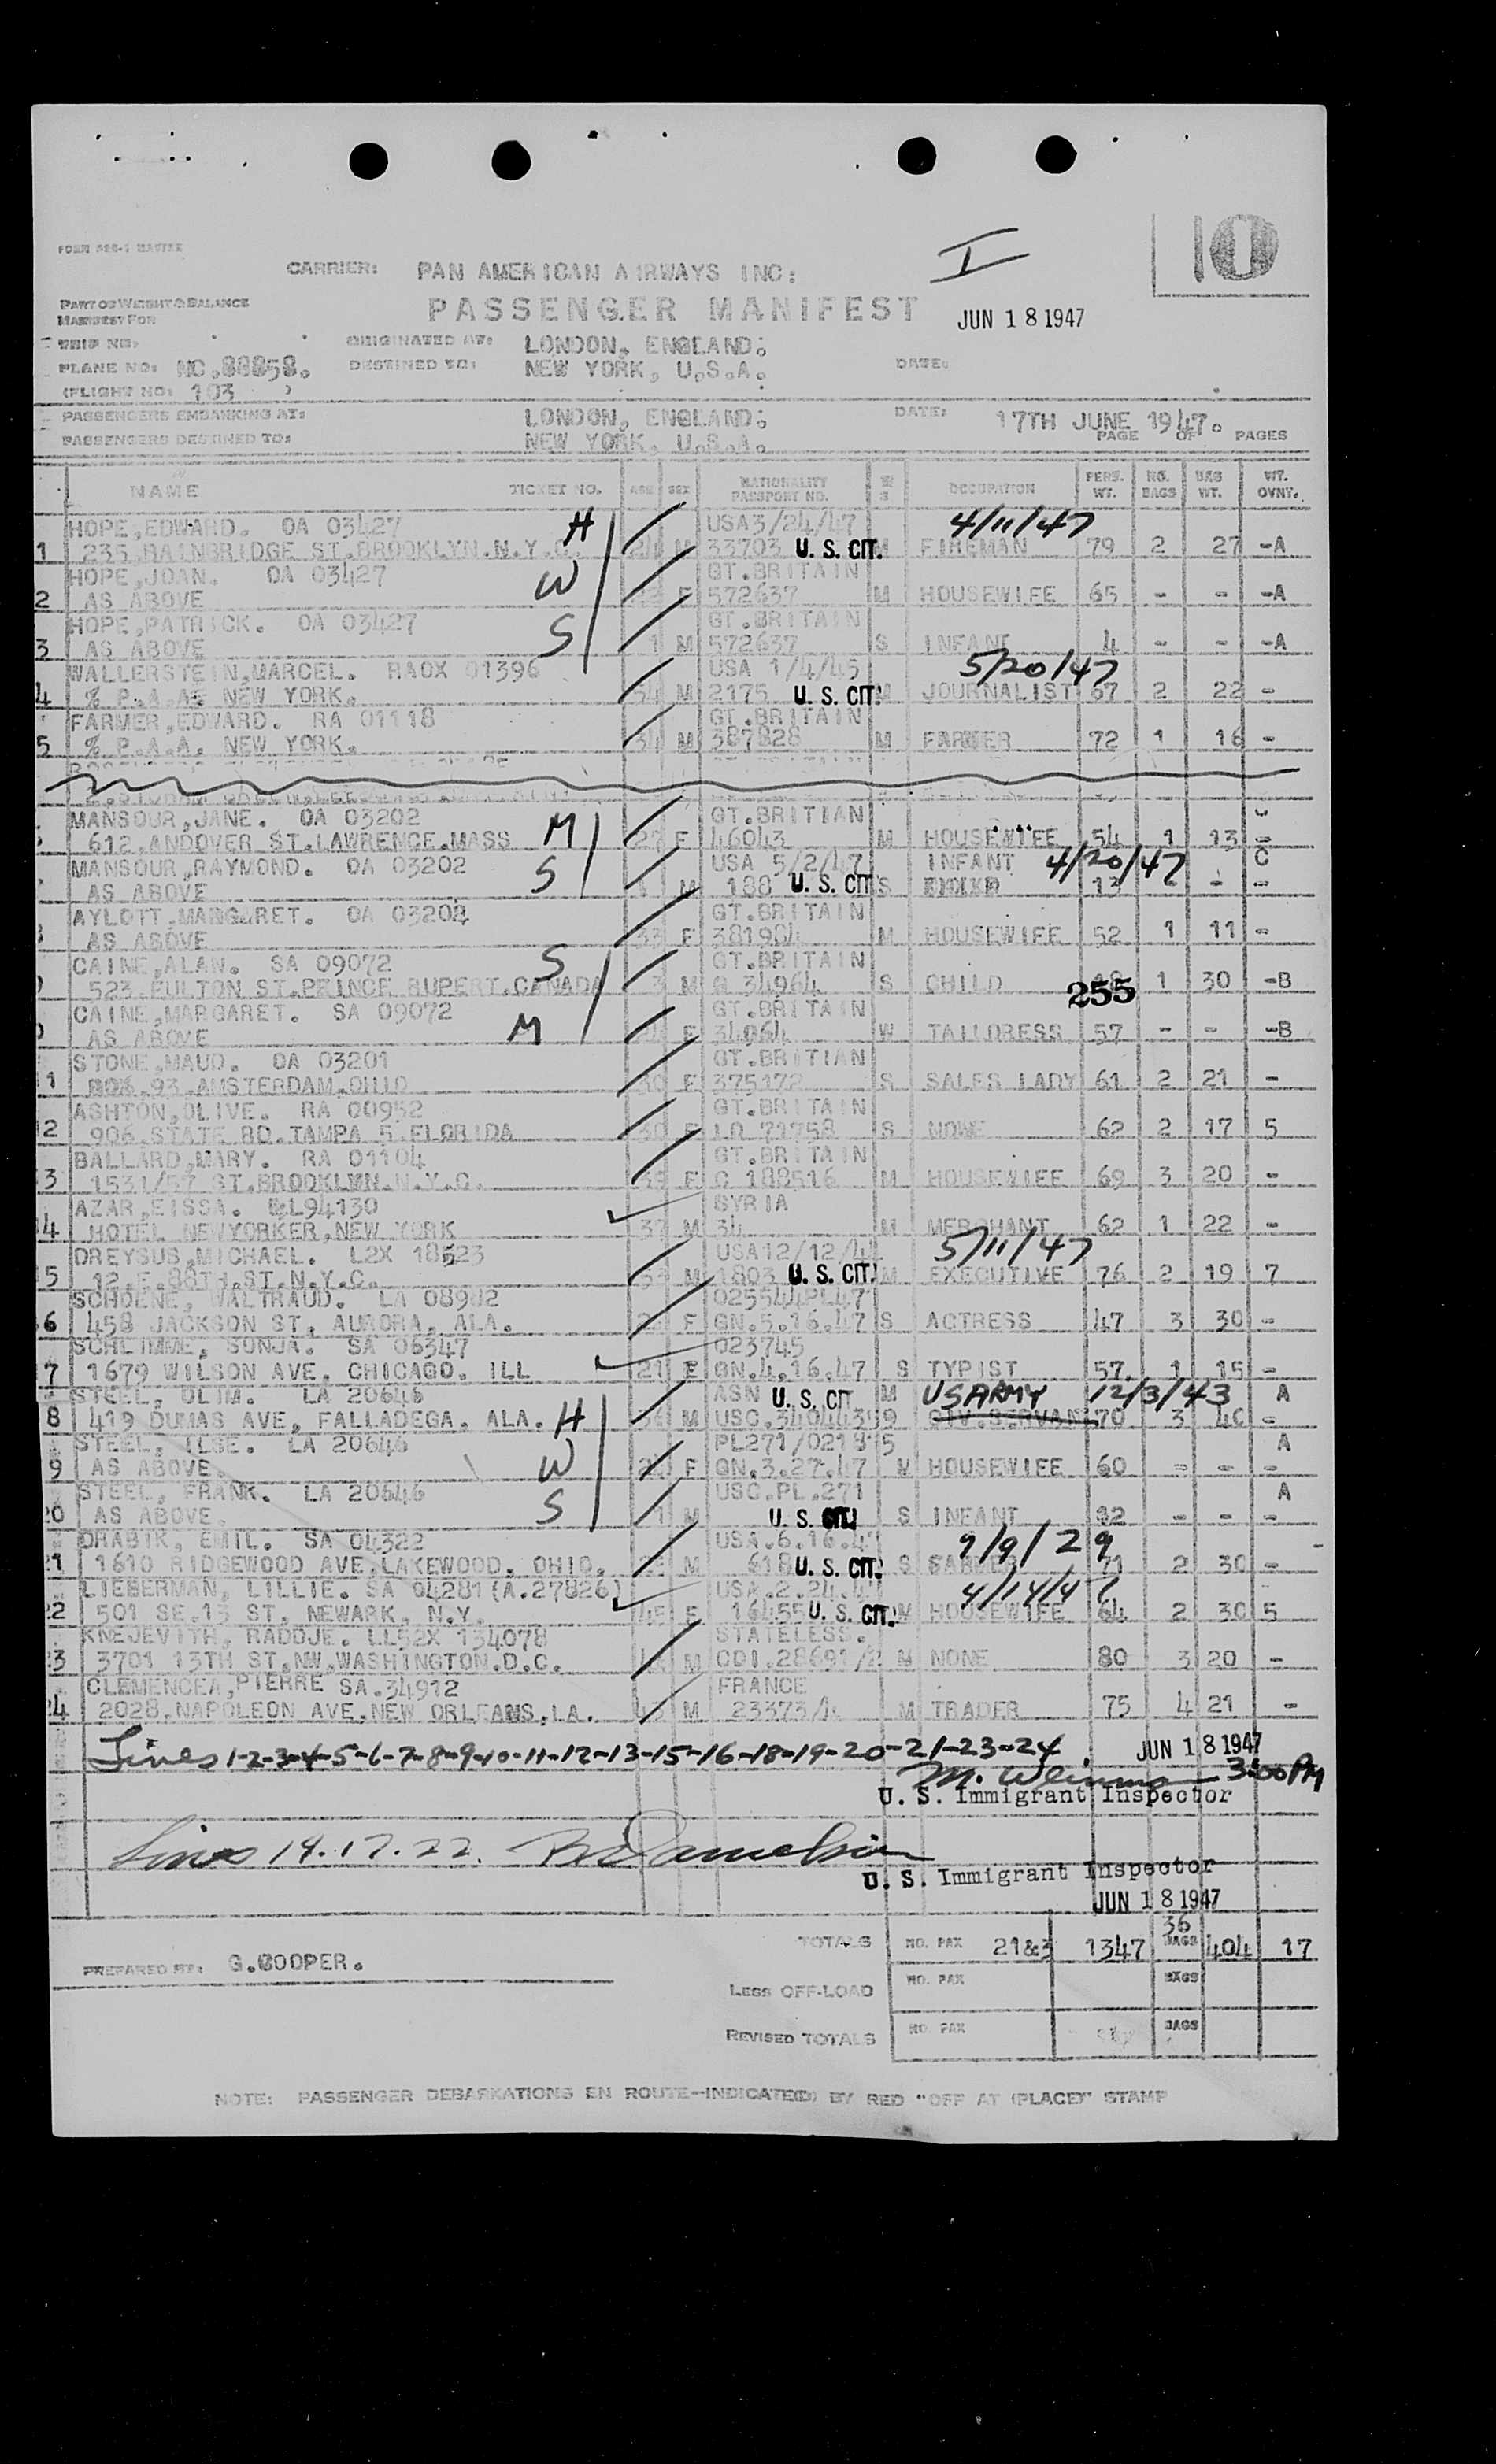 10
I
CARRIER: PAN AMERICAN AIRWAYS INC:
PART OF WEIGHT & BALANCE
MANIFEST FOR
PASSENGER MANIFEST
JUN 18 1947
TRIP NO:
ORIGINATED AT: LONDON, ENGLAND:
PLANE NO: NC.88858. DESTINED TO: NEW YORK, U.S.A. DATE:
(FLIGHT NO: 103 )
PASSENGERS EMBARKING AT: LONDON, ENGLAND: DATE: 17TH JUNE 1947.
PASSENGERS DESTINED TO: NEW YORK, U.S.A. PAGE OF PAGES
NAME TICKET NO. AGE SEX NATIONALITY PASSPORT NO. M S OCCUPATION PERS. WT. NO. BAGS BAG WT. WT. OVNT.
HOPE,EDWARD. OA 03427 H USA3/24/47 4/11/47
1 235 BAINBRIDGE ST.BROOKLYN.N.Y.C. M 33703 U. S. CIT. M FIREMAN 79 2 27 -A
HOPE,JOAN. OA 03427 W GT.BRITAIN
2 AS ABOVE F 572637 M HOUSEWIFE 65 - - -A
HOPE,PATRICK. OA 03427 S GT.BRITAIN
3 AS ABOVE 1 M 572637 S INFANT 4 - - -A
WALLERSTEIN,MARCEL. RAOX 01396 USA 1/4/45 5/20/47
4 % P.A.A. NEW YORK. 54 M 2175 U. S. CIT. M JOURNALIST 67 2 22 -
FARMER,EDWARD. RA 01118 GT.BRITAIN
5 % P.A.A. NEW YORK. 34 M 387828 M FARMER 72 1 16 -
MANSOUR,JANE. OA 03202 M GT.BRITIAN C
612.ANDOVER ST.LAWRENCE.MASS F 46043 M HOUSEWIFE 54 1 13 -
MANSOUR,RAYMOND. OA 03202 S USA 5/2/47 INFANT 4/20/47 C
AS ABOVE M 188 U. S. CIT S 13 - - -
AYLOTT,MARGARET. OA 03202 GT.BRITAIN
AS ABOVE 33 F 381904 M HOUSEWIFE 52 1 11 -
CAINE,ALAN. SA 09072 S GT.BRITAIN
523.FULTON ST.PRINCE RUPERT.CANADA 3 M G 34964 S CHILD 255 1 30 -B
CAINE,MARGARET. SA 09072 M GT.BRITAIN
AS ABOVE F W TAILORESS 57 - - -B
STONE,MAUD. OA 03201 GT.BRITIAN
1 BOX.93.AMSTERDAM.OHIO F 375172 S SALES LADY 61 2 21 -
ASHTON,OLIVE. RA 00952 GT.BRITAIN
2 906.STATE RD.TAMPA 5 FLORIDA F 71758 S NONE 62 2 17 5
BALLARD,MARY. RA 01104 GT.BRITAIN
3 1531/57 ST.BROOKLYN.N.Y.C. F C 188516 M HOUSEWIFE 69 3 20 -
AZAR,EISSA. 94130 SYRIA
4 HOTEL NEWYORKER,NEW YORK 37 M 34 M MERCHANT 62 1 22 -
DREYSUS,MICHAEL. L2X 18623 USA12/12/4 5/11/47
5 12.E.88TH.ST.N.Y.C. M 1803 U. S. CIT. M EXECUTIVE 76 2 19 7
SCHOENE, WALTRAUD. LA 08982 025544PL47
6 458 JACKSON ST, AURORA, ALA. F GN.5.16.47 S ACTRESS 47 3 30 -
SCHLIMME, SONJA. SA 06347 023745
7 1679 WILSON AVE, CHICAGO. ILL 21 F GN.4.16.47 S TYPIST 57. 1 15 -
STEEL, OLIM. LA 20646 ASN U. S. CIT M US ARMY 12/3/43 A
8 419 DUMAS AVE, FALLADEGA. ALA. H M USC.34044359 CIV.SERVANT 70 3 40 -
STEEL, ILSE. LA 20646 PL271/021815 A
9 AS ABOVE. W F GN.3.27.47 M HOUSEWIFE 60 - - -
STEEL, FRANK. LA 20646 USC.PL.271 A
20 AS ABOVE. S 1 M U. S. CIT. S INFANT - - -
DRABIK, EMIL. SA 04322 USA.6.16.4 9/9/29
21 1610 RIDGEWOOD AVE,LAKEWOOD, OHIO. M 618 U. S. CIT. S 71 2 30 -
LIEBERMAN, LILLIE. SA 04281(A.27826) USA.2.24.4 4/14/4
22 501 SE.13 ST, NEWARK, N.Y. 45 F 16455 U. S. CIT. M HOUSEWIFE 64 2 30 5
KNEJEVITH, RADOJE. LL52X 134078 STATELESS.
23 3701 13TH ST.NW.WASHINGTON.D.C. M CDI.28691/2 M NONE 80 3 20 -
CLEMENCEA,PIERRE SA.34912 FRANCE
24 2028.NAPOLEON AVE.NEW ORLEANS,LA. M 23373/ M TRADER 75 4 21 -
Lines 1-2-3-4-5-6-7-8-9-10-11-12-13-15-16-18-19-20-21-23-24 JUN 18 1947
3:00 PM
U. S. Immigrant Inspector
Lines 14.17.22.
U. S. Immigrant Inspector
JUN 18 1947
TOTALS NO. PAX 21&3 1347 36 BAGS 404 17
PREPARED BY: G.COOPER.
LESS OFF-LOAD NO. PAX BAGS
REVISED TOTALS NO. PAX BAGS
NOTE: PASSENGER DEBARKATIONS EN ROUTE--INDICATE(D) BY RED "OFF AT (PLACE)" STAMP